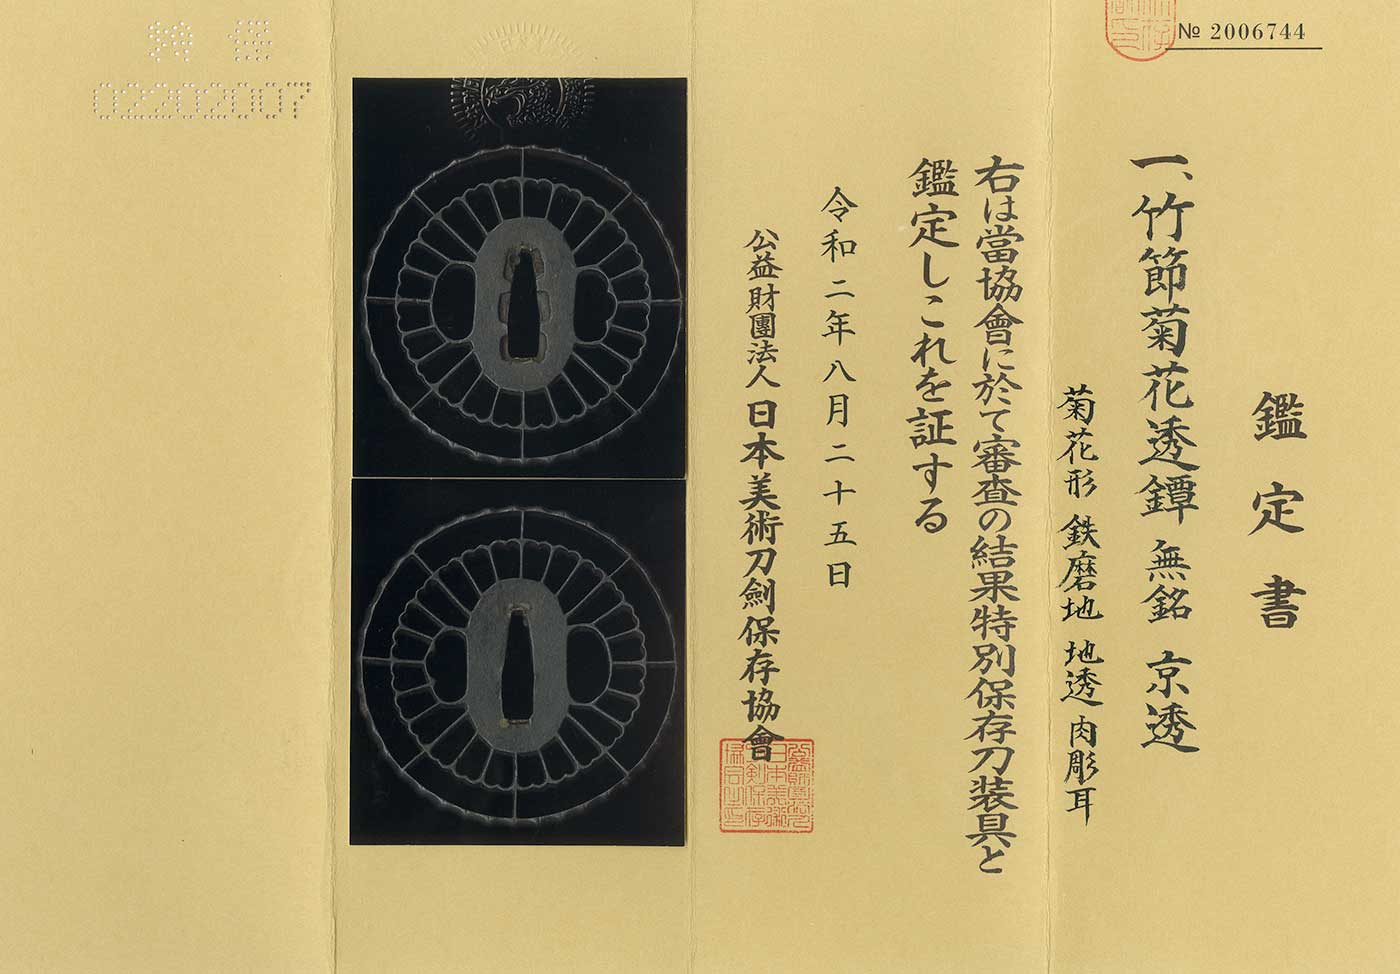 № 2006744
鑑定書
一、竹節菊花透鐔 無銘 京透
菊花形 鉄磨地 地透 肉彫耳
右は當協會に於て審査の結果特別保存刀装具と
鑑定しこれを証する
令和二年八月二十五日
公益財團法人 日本美術刀劍保存協會
02202007